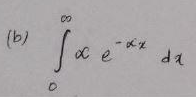 (b) ∫₀^∞ x e^{-αx} dx